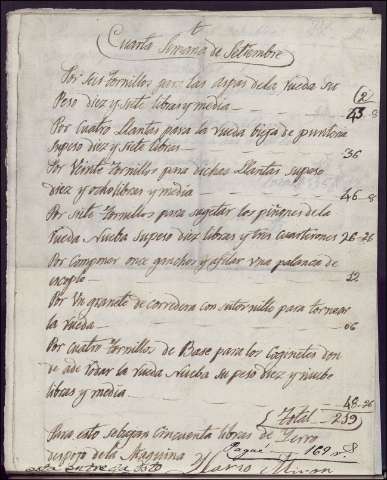 Cuarta Semana de Setiembre
Por seis tornillos para las aspas dela rueda su
Peso diez y siete libras y media — 43 - 8
Por Cuatro Llantas para la rueda bieja de puntona
supeso diez y siete libras — 36
Por Veinte tornillos para dichas Llantas supeso
diez y ocho libras y media — 46 - 8
Por siete tornillos para sugetar los piñones dela
Rueda Nueba supeso diez libras y tres cuarterones 26 - 26
Por Componer once ganchos y afilar una palanca de
— 12
Por Un granete de corredera con su tornillo para tornear
la rueda — 06
Por cuatro tornillos de Base para los Coginetes don
de ade rodar la rueda Nueba su peso diez y nuebe
libras y media — 48 - 26
Total — 219
Para esto setagan Cincuenta libras de Fierro
despojo dela Maquina Pagué 169 r. 8